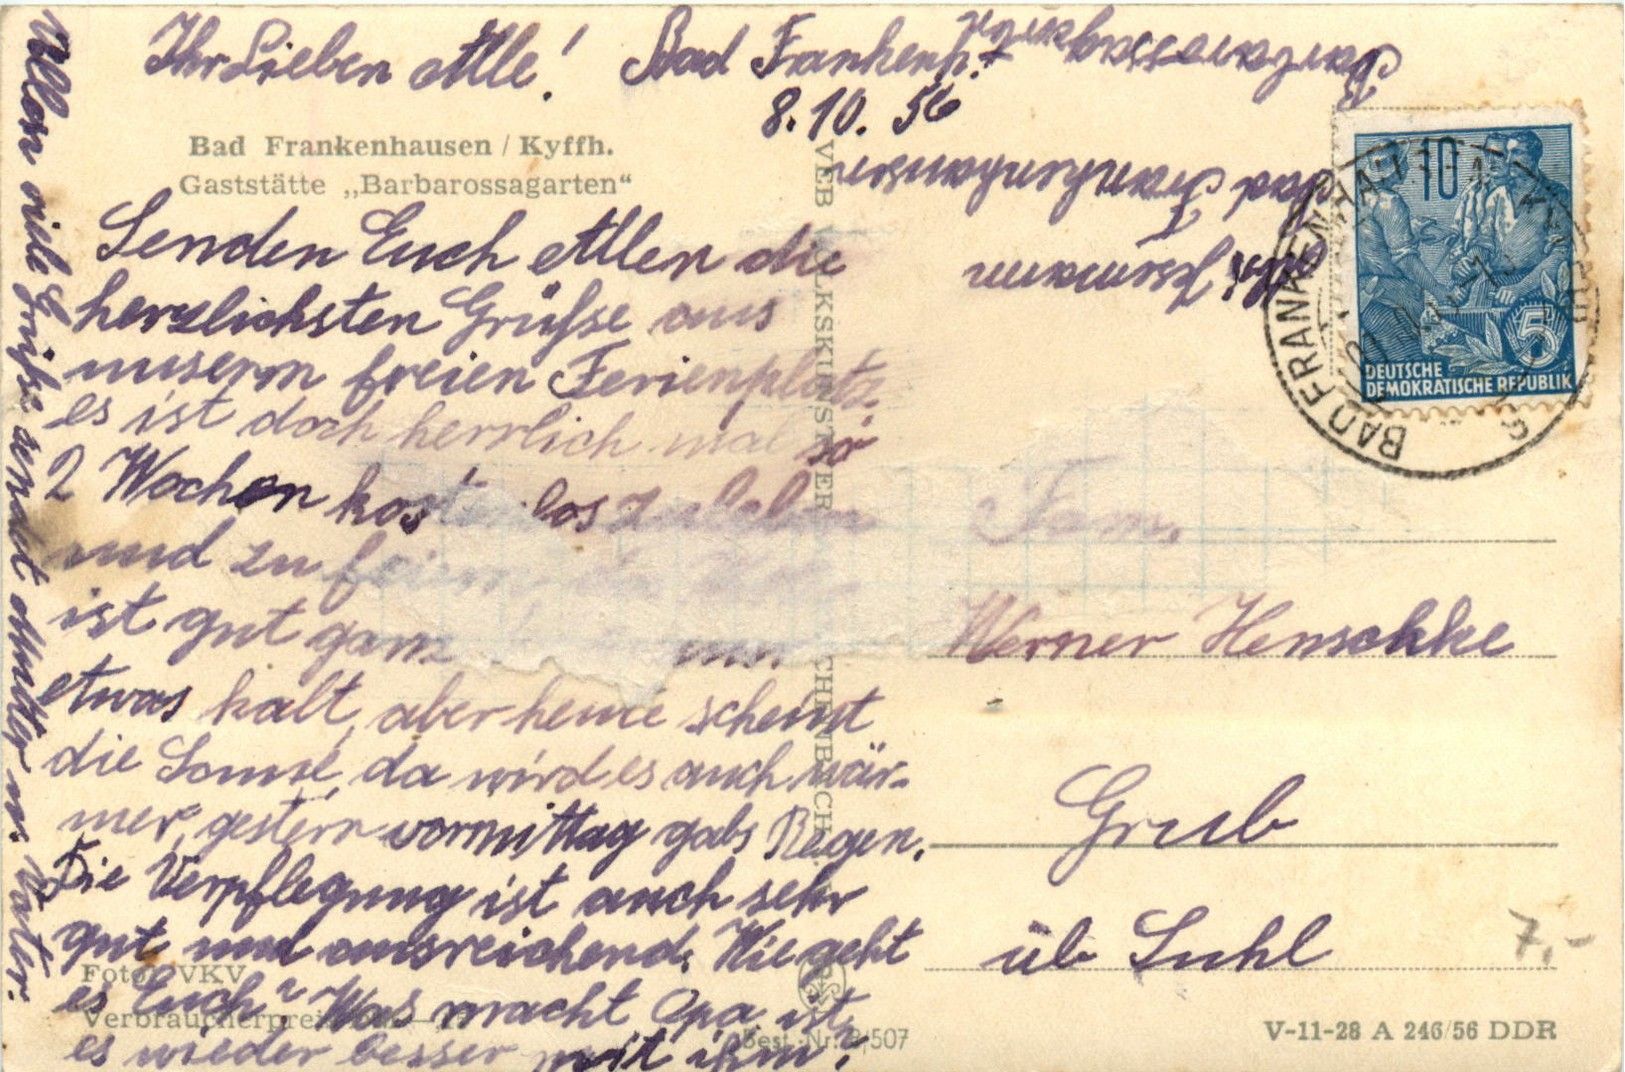 Ihr Lieben Alle! Bad Frankenh.
8.10.56
Bad Frankenhausen / Kyffh.
Gaststätte „Barbarossagarten“
Senden Euch Allen die
herzlichsten Grüße aus
unserm freien Ferienplatz.
es ist doch herrlich mal so
2 Wochen kostenlos zu leben
und zu
ist gut ganz nur
etwas kalt, aber heute scheint
die Sonne, da wird es auch wär-
mer, gestern vormittag gabs Regen.
Die Verpflegung ist auch sehr
gut und ausreichend. Wie geht
es Euch? Was macht Opa ist
es wieder besser mit ihm?
Allen viele Grüße sendet Mutter u. Vater.
Barbarossagarten
Bad Frankenhausen
10
5
DEUTSCHE
DEMOKRATISCHE REPUBLIK
BAD FRANKENHAUSEN
Fam.
Werner Henschke
Grub
üb Suhl
7,-
Foto: VKV
Verbraucherpreis
Best.-Nr. 3,507
V-11-28 A 246/56 DDR